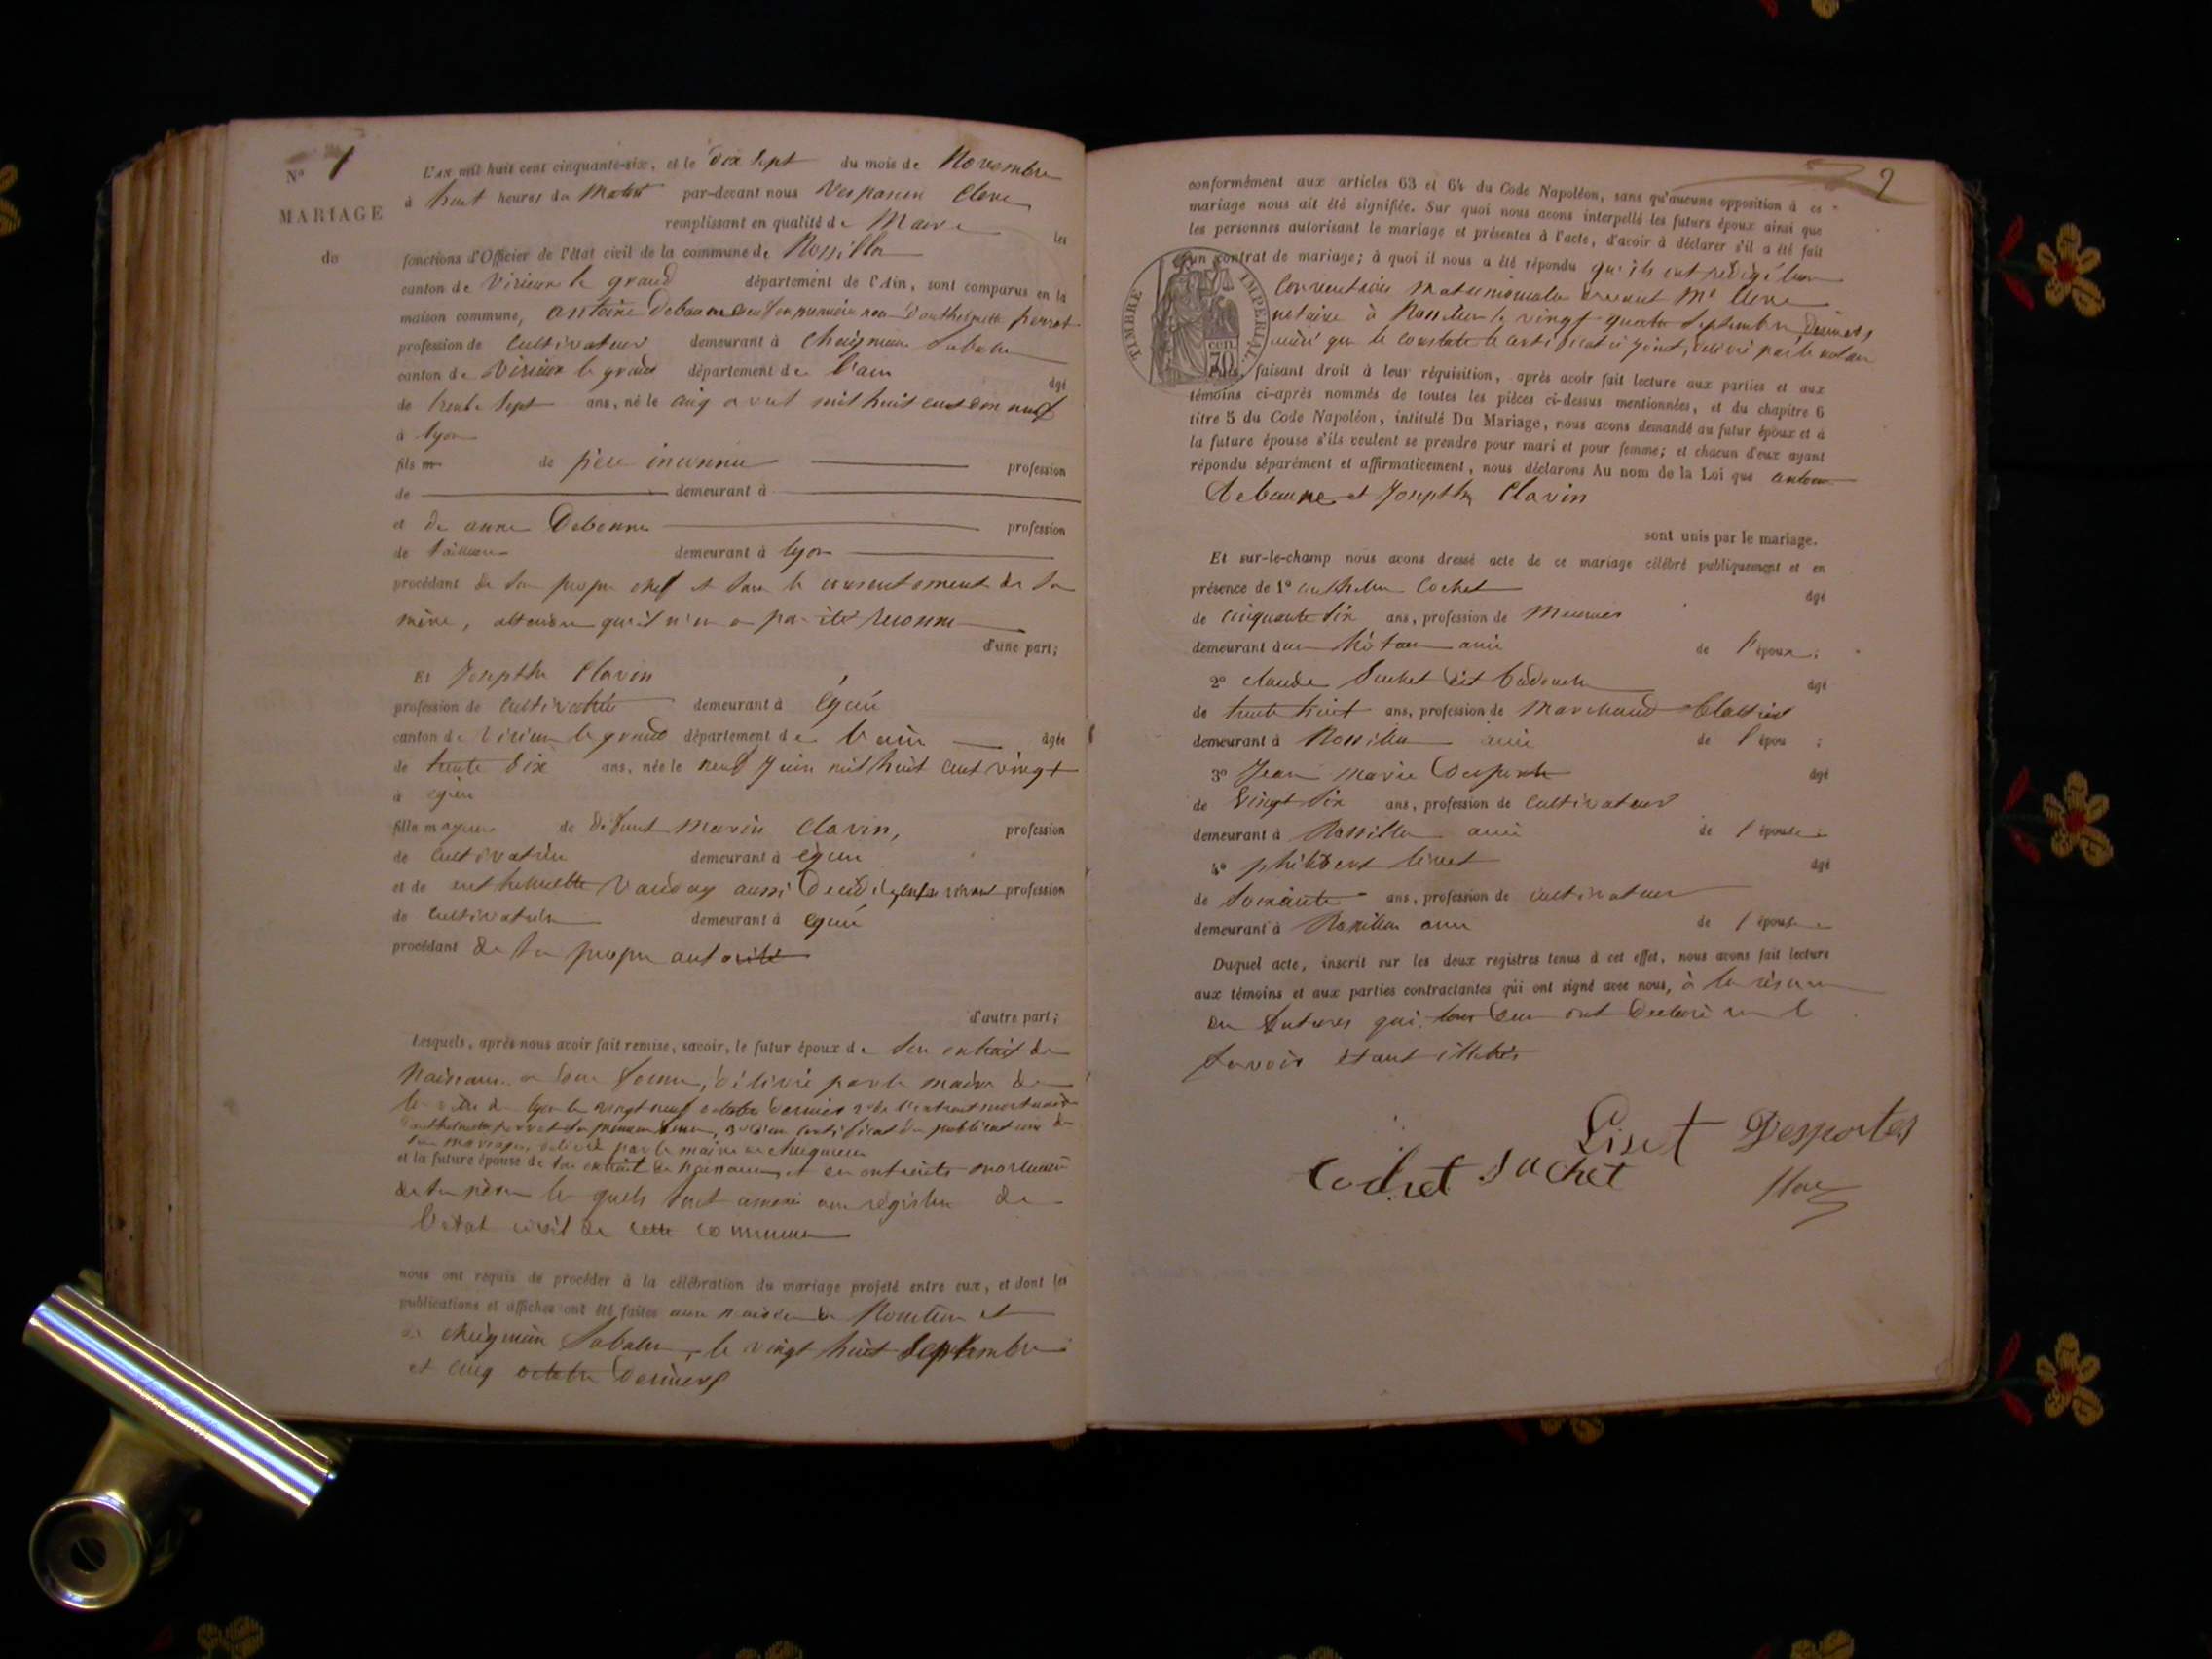 N° 1
MARIAGE
du
L'AN mil huit cent cinquante-six, et le dix sept du mois de Novembre
à huit heures du Matin par-devant nous Vespasien Clerc
remplissant en qualité de Maire les
fonctions d'Officier de l'état civil de la commune de Rossillon
canton de Virieu le grand département de l'Ain, sont comparus en la
maison commune, antoine Debaune d'anthelmette perret
profession de Cultivateur demeurant à Cheignieu Labalme
canton de Virieu le grand département de l'ain âgé
de trente Sept ans, né le cinq avril mil huit cent dix neuf
à lyon
fils de père inconnu profession
de demeurant à
et de anne Debonne profession
de demeurant à lyon
procédant de son propre chef et sans le consentement de sa
mère, attendu qu'il n'en a pas été reconnu
d'une part;
Et Josephte Clavin
profession de cultivatrice demeurant à égieu
canton de Virieu le grand département de l'ain âgée
de trente Six ans, née le neuf Juin mil huit cent vingt
à égieu
fille majeure de défunt Marin Clavin, profession
de cultivateur demeurant à égieu
et de anthelmette Vauday aussi décédée, en son vivant profession
de cultivatrice demeurant à égieu
procédant de sa propre autorité
d'autre part;
Lesquels, après nous avoir fait remise, savoir, le futur époux de son extrait de
Naissance en bonne forme, délivré par le maire de
la ville de lyon le vingt neuf octobre dernier 2° de l'extrait mortuaire
d'anthelmette perret sa première femme, 3° d'un certificat de publication de
son mariage, délivré par le maire de cheignieu
et la future épouse de son extrait de naissance, et des extraits mortuaires
de ses père les quels sont annexé aux régistre de
l'état civil de cette commune
nous ont requis de procéder à la célébration du mariage projeté entre eux, et dont les
publications et affiches ont été faites aux mairies de Rossillon et
de cheignieu Labalme, le vingt huit Septembre
et cinq octobre derniers
2
conformément aux articles 63 et 64 du Code Napoléon, sans qu'aucune opposition à ce
mariage nous ait été signifiée. Sur quoi nous avons interpellé les futurs époux ainsi que
les personnes autorisant le mariage et présentes à l'acte, d'avoir à déclarer s'il a été fait
un contrat de mariage; à quoi il nous a été répondu qu'ils ont rédigé leurs
conventions matrimoniales devant Me Clerc
notaire à Rossillon le vingt quatre Septembre dernier,
ainsi que le constate le certificat ci joint, délivré par le notaire
TIMBRE IMPERIAL
cen 70
Puis, faisant droit à leur réquisition, après avoir fait lecture aux parties et aux
témoins ci-après nommés de toutes les pièces ci-dessus mentionnées, et du chapitre 6
titre 5 du Code Napoléon, intitulé Du Mariage, nous avons demandé au futur époux et à
la future épouse s'ils veulent se prendre pour mari et pour femme; et chacun d'eux ayant
répondu séparément et affirmativement, nous déclarons Au nom de la Loi que antoine
Debaune et Josephte Clavin
sont unis par le mariage.
Et sur-le-champ nous avons dressé acte de ce mariage célébré publiquement et en
présence de 1° anthelme Cochet âgé
de cinquante six ans, profession de Meunier
demeurant ami de l'époux;
2° claude Suchet dit âgé
de trente huit ans, profession de Marchand
demeurant à Rossillon ami de l'épou ;
3° Jean Marie Desportes âgé
de Vingt six ans, profession de cultivateur
demeurant à Rossillon ami de l'épouse;
4° philibert liset âgé
de Soixante ans, profession de cultivateur
demeurant à Rossillon ami de l'épouse
Duquel acte, inscrit sur les deux registres tenus à cet effet, nous avons fait lecture
aux témoins et aux parties contractantes qui ont signé avec nous, à la réserve
des futures qui tous deux ont déclaré ne le
savoir étant illétrés
Liset Desportes
Cochet Suchet Clerc